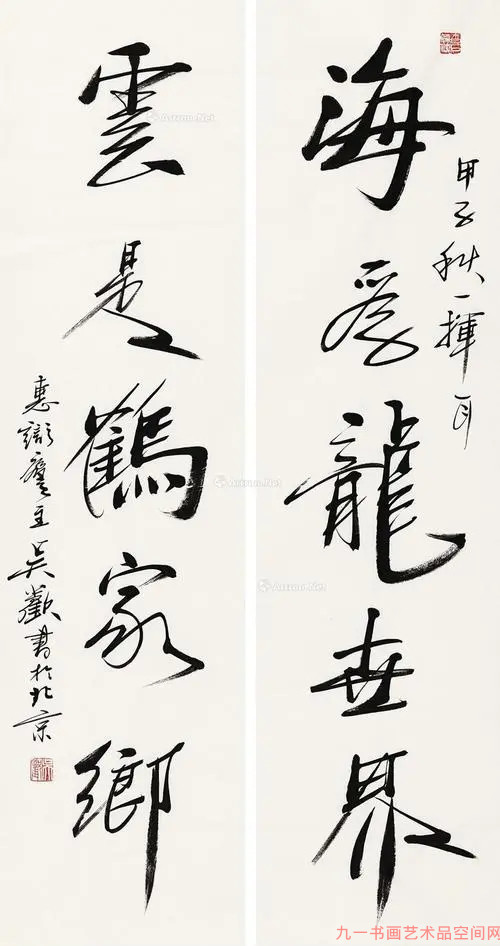 海為龍世界
甲子秋一揮
雲是鶴家鄉
主吳歡書於北京
Artron.Net
Artron.Net
Artron.Net
Artron.Net
九一书画艺术品空间网